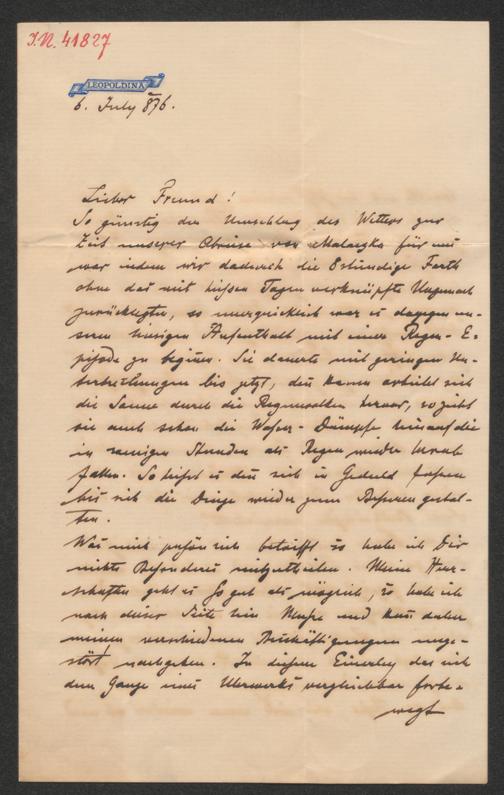 I.N. 41827
LEOPOLDINA
6. July 876.
Lieber Freund!
So günstig der Umschlag des Wetters zur
Zeit unserer Abreise von Malaczka für uns
war indem wir dadurch die 8stündige Farth
ohne das mit heißen Tagen verknüpfte Ungemach
zurücklegten, so unerquicklich war es dagegen un-
seren hiesigen Aufenthalt mit einer Regen-E-
pisode zu beginen. Sie dauerte mit geringen Un-
terbrechungen bis jetzt, den kaum arbeitet sich
die Sonne durch die Regenwolken hervor, so zieht
sie auch schon die Wasser-Dämpfe hinauf die
in wenigen Stunden als Regen wieder herab
fallen. So heißt es den sich in Geduld fassen
bis sich die Dinge wieder zum Besseren gestal-
ten.
Was mich persönlich betrifft so habe ich Dir
nichts Besonderes mitzutheilen. Meine Herr-
schaften geht es so gut als möglich, so habe ich
nach dieser Seite hin Muße und kan daher
meinen verschiedenen Beschäftigungen unge-
stört nachgehen. In diesem Einerley das sich
dem Gange eines Uhrwerks vergleichbar fortbe-
wegt